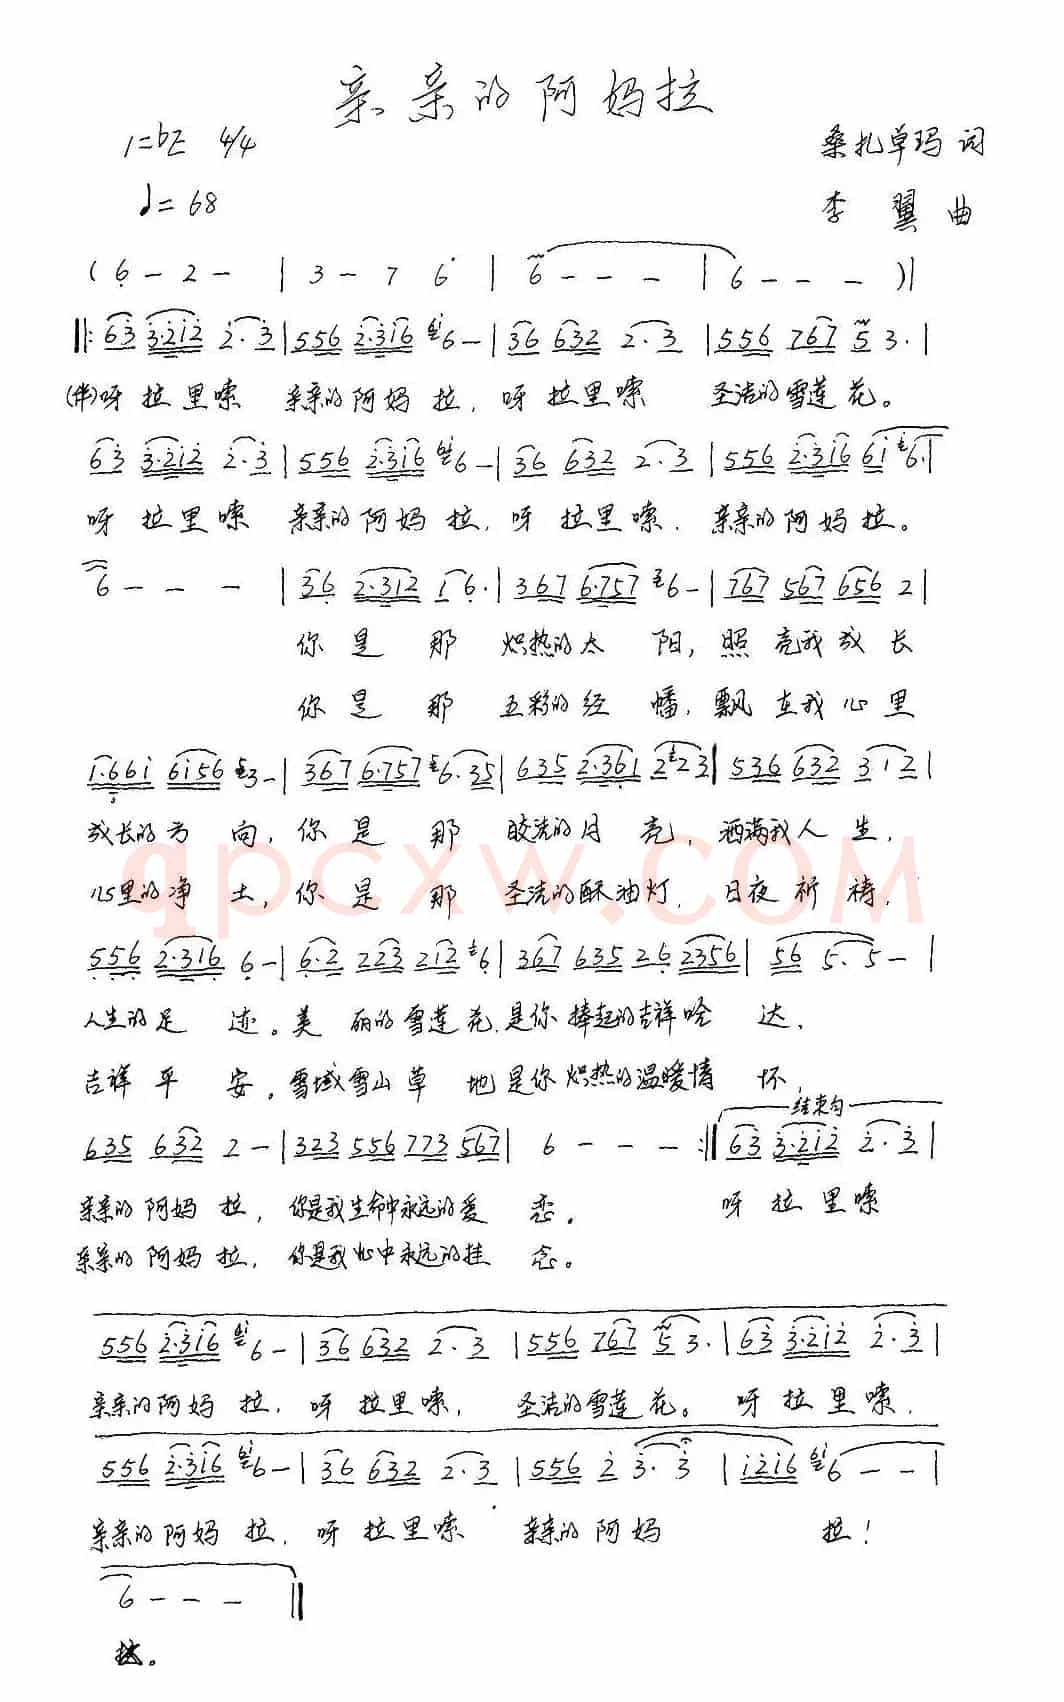 亲亲的阿妈拉
1=bE 4/4
桑扎卓玛 词
♩=68
李翼 曲
(6 - 2 - | 3 - 7 6 | 6 - - - | 6 - - - )|
‖: 63 3·212 2·3 | 556 2·316 6 - | 36 632 2·3 | 556 767 5 3· |
(伴)呀拉里嗦 亲亲的阿妈拉，呀拉里嗦 圣洁的雪莲花。
63 3·212 2·3 | 556 2·316 6 - | 36 632 2·3 | 556 2·316 61 6· |
呀拉里嗦 亲亲的阿妈拉，呀拉里嗦，亲亲的阿妈拉。
6 - - - | 36 2·312 1 6· | 367 6·757 6 - | 767 567 656 2 |
你是那 炽热的太阳，照亮我成长
你是那 五彩的经幡，飘在我心里
1·661 6156 3 - | 367 6·757 6·35 | 635 2·361 223 | 536 632 312 |
成长的方向，你是那 皎洁的月亮，洒满我人生，
心里的净土，你是那 圣洁的酥油灯，日夜祈祷，
556 2·316 6 - | 6·2 223 212 6 | 367 635 26 2356 | 56 5· 5 - |
人生的足迹。美丽的雪莲花，是你捧起的吉祥哈达，
吉祥平安。雪域雪山草地是你炽热的温暖情怀，
结束句
635 632 2 - | 323 556 773 567 | 6 - - - :‖ 63 3·212 2·3 |
亲亲的阿妈拉，你是我生命中永远的爱恋。 呀拉里嗦
亲亲的阿妈拉，你是我心中永远的挂念。
556 2·316 6 - | 36 632 2·3 | 556 767 5 3· | 63 3·212 2·3 |
亲亲的阿妈拉，呀拉里嗦，圣洁的雪莲花。呀拉里嗦，
556 2·316 6 - | 36 632 2·3 | 556 2 3· 3 | 1216 6 - - |
亲亲的阿妈拉，呀拉里嗦 亲亲的阿妈 拉！
6 - - - ‖
拉。
qpcxw.com